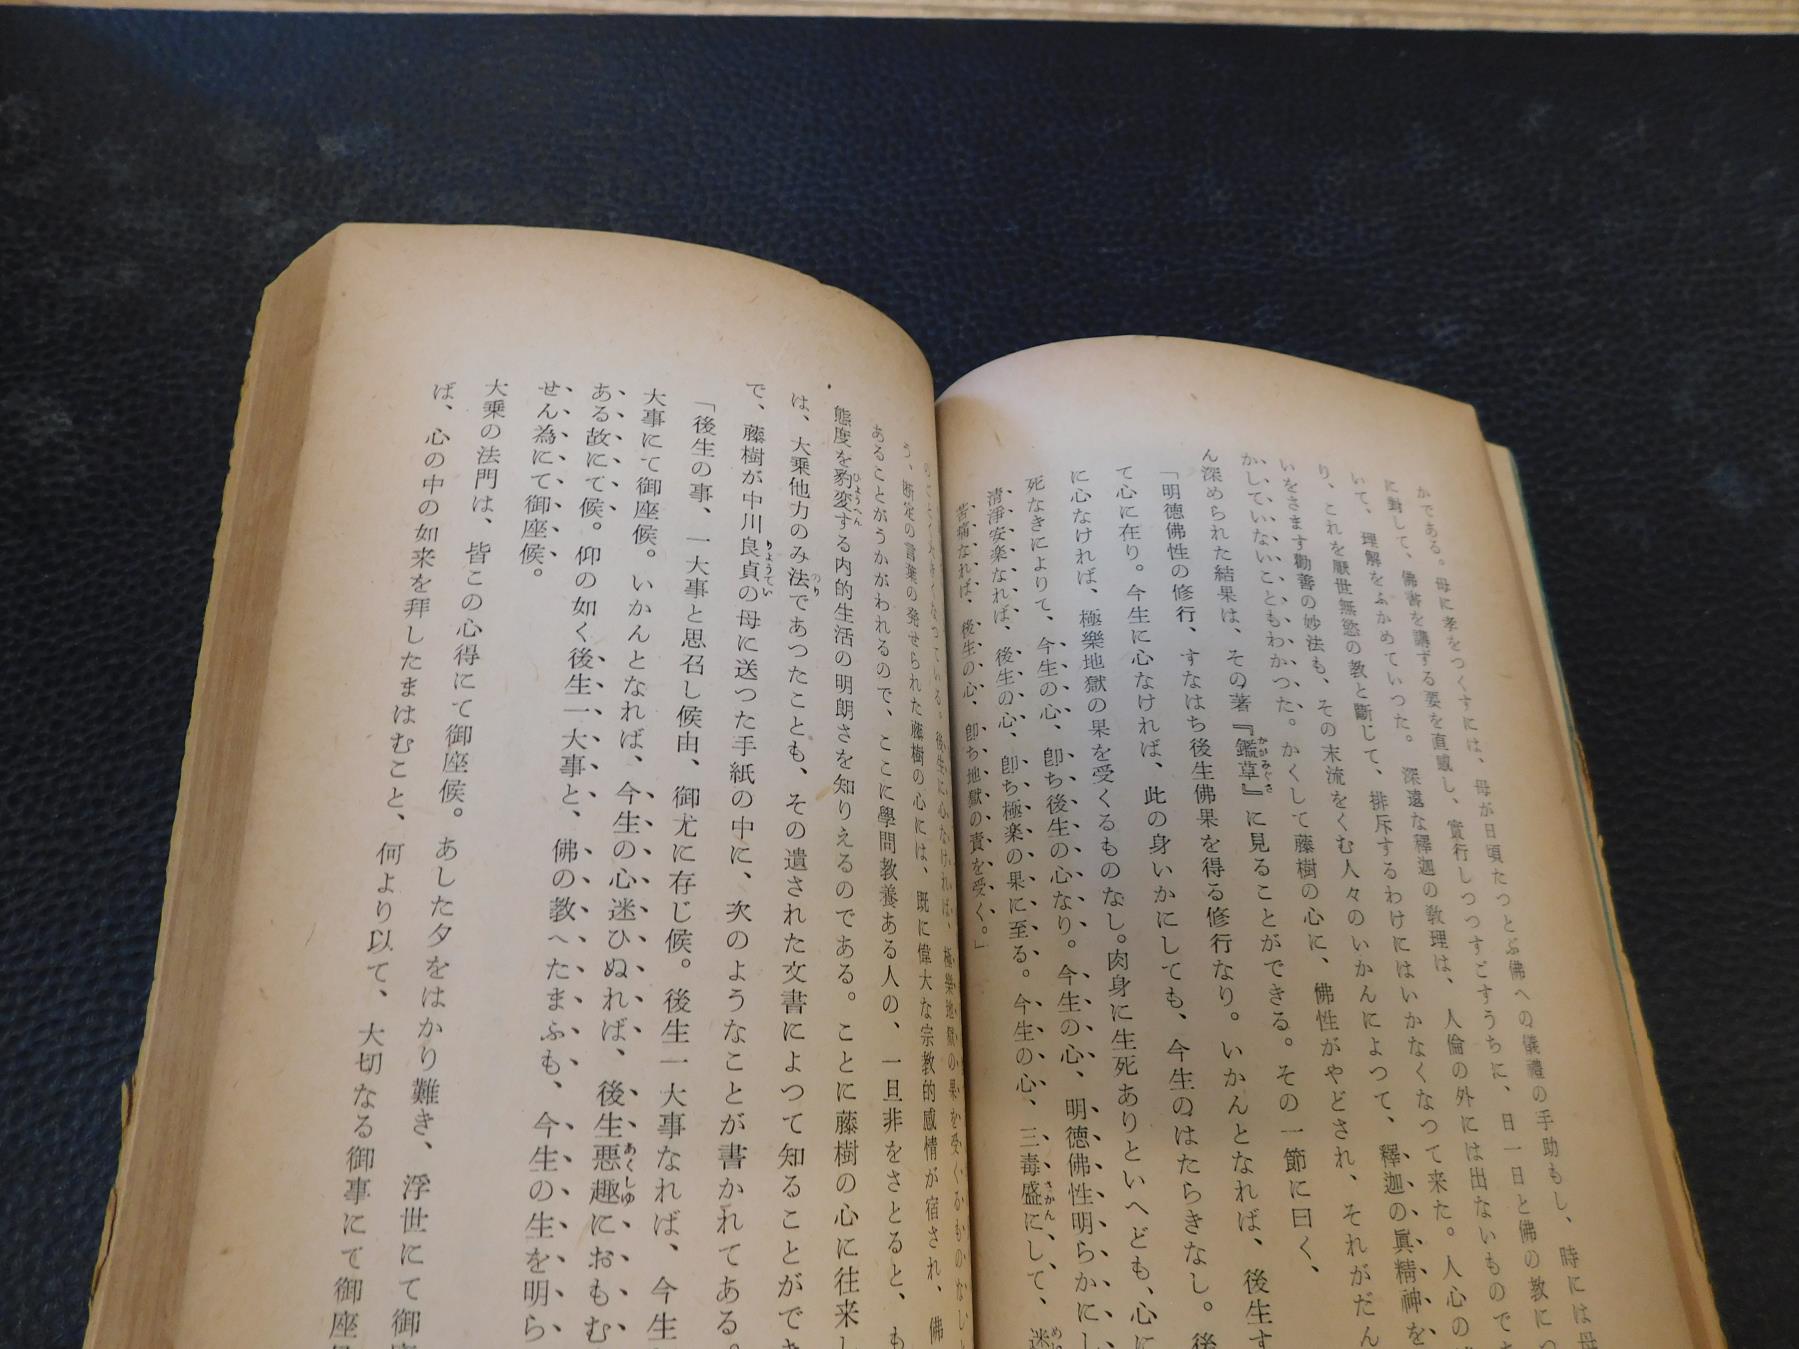 かである。母に孝をつくすには、母が日頃たつとぶ佛への儀禮の手助もし、時には母
に對して、佛書を講ずる要を直感し、實行しつつすごすうちに、日一日と佛の教につ
いて、理解をふかめていった。深遠な釋迦の敎理は、人倫の外には出ないものでき
り、これを厭世無慾の教と斷じて、排斥するわけにはいかなくなつて来た。人心の
いをさます勸善の妙法も、その末流をくむ人々のいかんによつて、釋迦の眞精神を
かしていないこともわかつた。かくして藤樹の心に、佛性がやどされ、それがだん
ん深められた結果は、その著『鑑草』に見ることができる。その一節に曰く、
「明德佛性の修行、すなはち後生佛果を得る修行なり。いかんとなれば、後生す
て心に在り。今生に心なければ、此の身いかにしても、今生のはたらきなし。後
に心なければ、極樂地獄の果を受くるものなし。肉身に生死ありといへども、心に
死なきによりて、今生の心、卽ち後生の心なり。今生の心、明徳佛性明らかにし
清淨安楽なれば、後生の心、卽ち極楽の果に至る。今生の心、三毒盛にして、迷
苦痛なれば、後生の心、卽ち地獄の責を受く。」
後生に心なければ、極樂地獄の果を受くるものなしと
う、断定の言葉の発せられた藤樹の心には、既に偉大な宗教的感情が宿され、佛
あることがうかがわれるので、ここに學問教養ある人の、一旦非をさとると、も
態度を豹変する内的生活の明朗さを知りえるのである。ことに藤樹の心に往来し
は、大乗他力のみ法であったことも、その遺された文書によつて知ることができ
で、藤樹が中川良貞の母に送つた手紙の中に、次のようなことが書かれてある。
「後生の事、一大事と思召し候由、御尤に存じ候。後生一大事なれば、今生
大事にて御座候。いかんとなれば、今生の心迷ひぬれば、後生悪趣におもむ
ある故にて候。仰の如く後生一大事と、佛の教へたまふも、今生の生を明ら
せん為にて御座候。
大乗の法門は、皆この心得にて御座候。あした夕をはかり難き、浮世にて御
ば、心の中の如来を拝したまはむこと、何より以て、大切なる御事にて御座